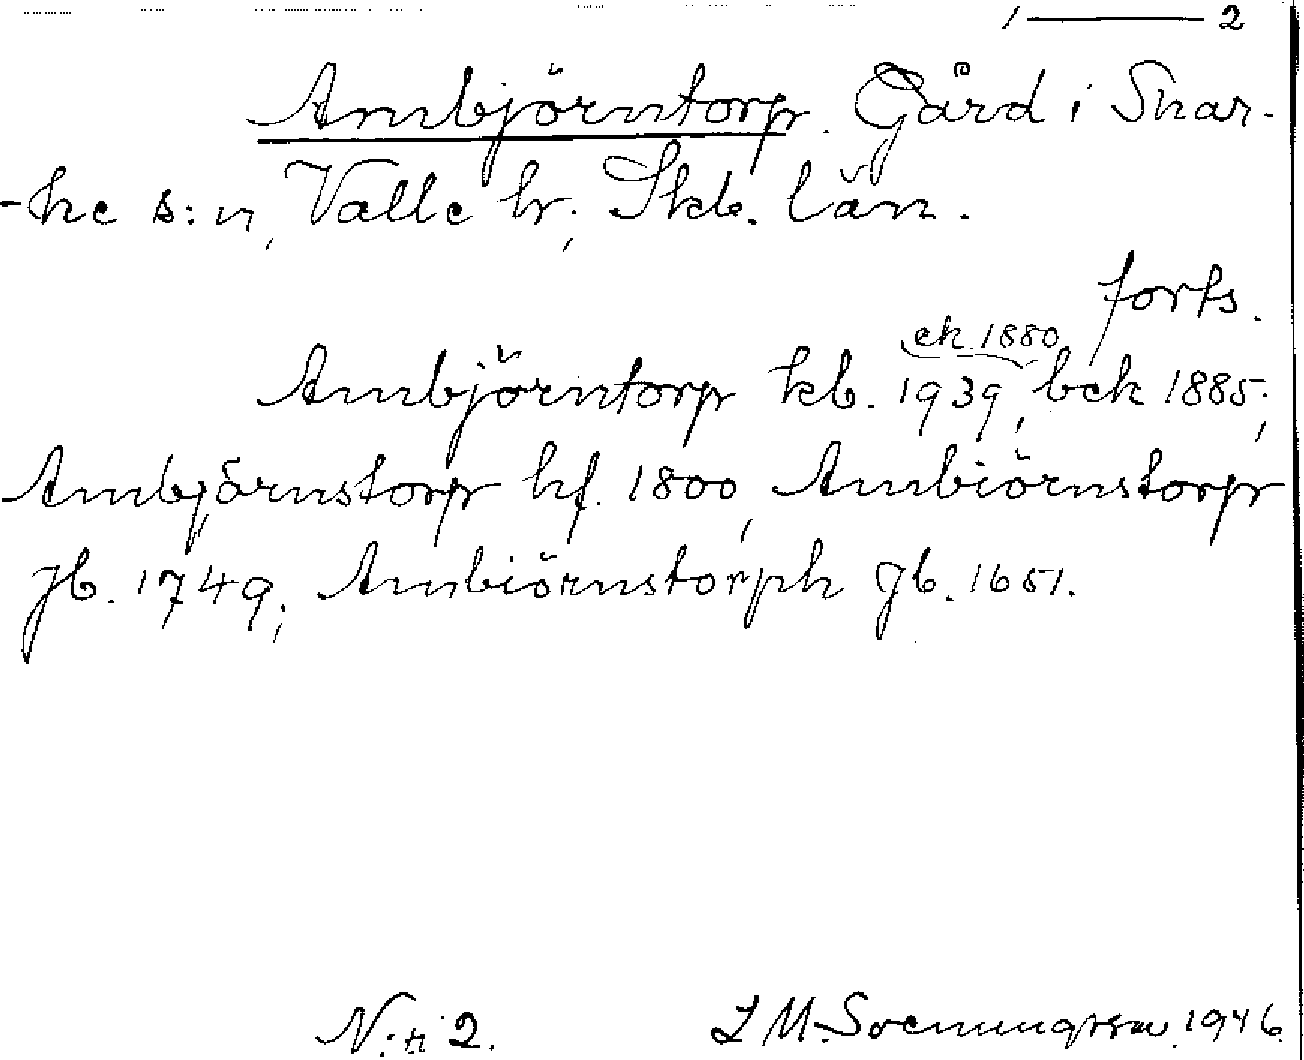 1 — 2
Ambjörntorp. Gård i Skar-
-ke s:n, Valle hr, Skb. län.
forts.
ek 1880
Ambjörntorp kb. 1939, bek 1885;
Ambjörnstorp hf. 1800, Ambiörnstorp
jb. 1749; Ambiörnstorph jb. 1651.
N:r 2. 1946